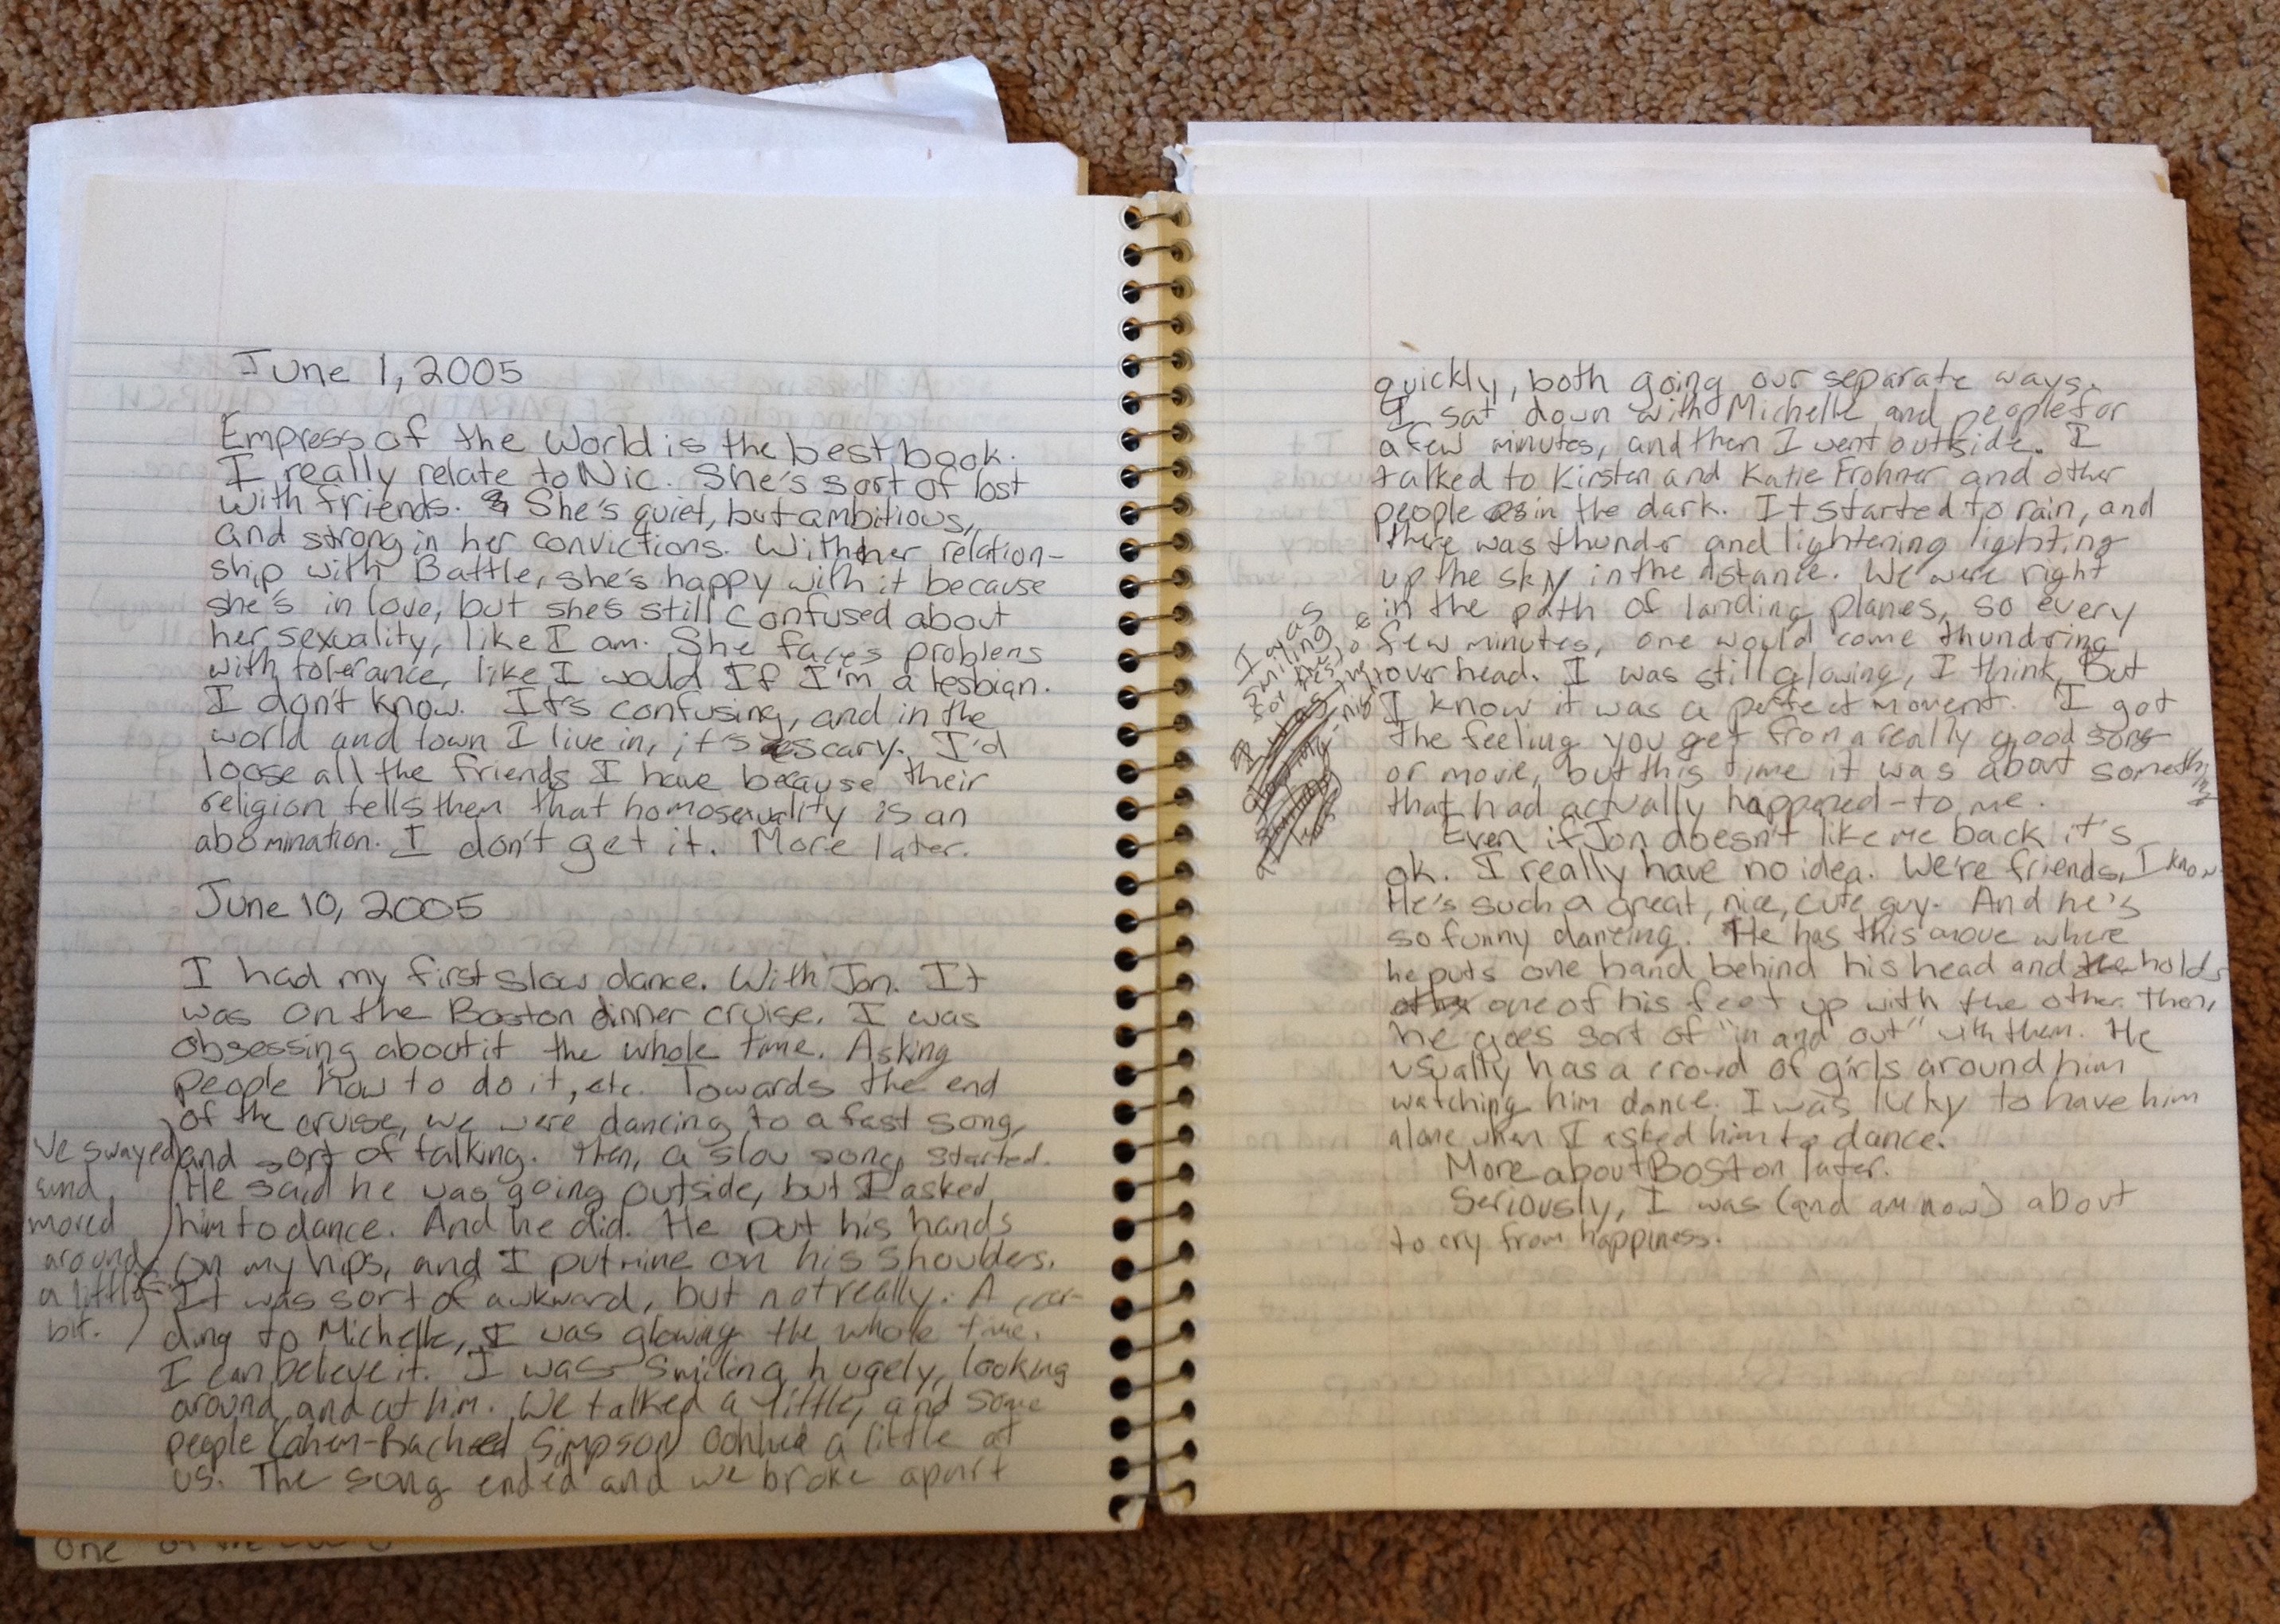 June 1, 2005
Empress of the World is the best book.
I really relate to Nic. She's sort of lost
with friends. She's quiet, but ambitious,
and strong in her convictions. With her relation-
ship with Battle, she's happy with it because
she's in love, but she's still confused about
her sexuality, like I am. She faces problems
with tolerance, like I would If I'm a lesbian.
I don't know. It's confusing, and in the
world and town I live in, it's scary. I'd
loose all the friends I have because their
religion tells them that homosexuality is an
abomination. I don't get it. More later.
June 10, 2005
I had my first slow dance. With Jon. It
was on the Boston dinner cruise. I was
obsessing about it the whole time. Asking
people how to do it, etc. Towards the end
of the cruise, we were dancing to a fast song,
and sort of talking. Then, a slow song started.
He said he was going outside, but I asked
him to dance. And he did. He put his hands
on my hips, and I put mine on his shoulders.
We swayed
and
moved
around
a little
bit.
It was sort of awkward, but not really. Accor-
ding to Michelle, I was glowing the whole time.
I can believe it. I was smiling hugely, looking
around and at him. We talked a little, and some
people (ahem-Rachel Simpson) oohhed a little at
us. The song ended and we broke apart
quickly, both going our separate ways.
I sat down with Michelle and people for
a few minutes, and then I went outside. I
talked to Kirsten and Katie Frohner and other
people in the dark. It started to rain, and
there was thunder and lightening lighting
up the sky in the distance. We were right
in the path of landing planes, so every
few minutes, one would come thundring
overhead. I was still glowing, I think, But
I know it was a perfect moment. I got
the feeling you get from a really good song
or movie, but this time it was about something
that had actually happened-to me.
I was
smiling
for the
Even if Jon doesn't like me back it's
ok. I really have no idea. We're friends, I know.
He's such a great, nice, cute guy. And he's
so funny dancing. He has this move where
he puts one hand behind his head and holds
one of his feet up with the other. Then,
he goes sort of "in and out" with them. He
usually has a crowd of girls around him
watching him dance. I was lucky to have him
alone when I asked him to dance.
More about Boston later.
Seriously, I was (and am now) about
to cry from happiness.